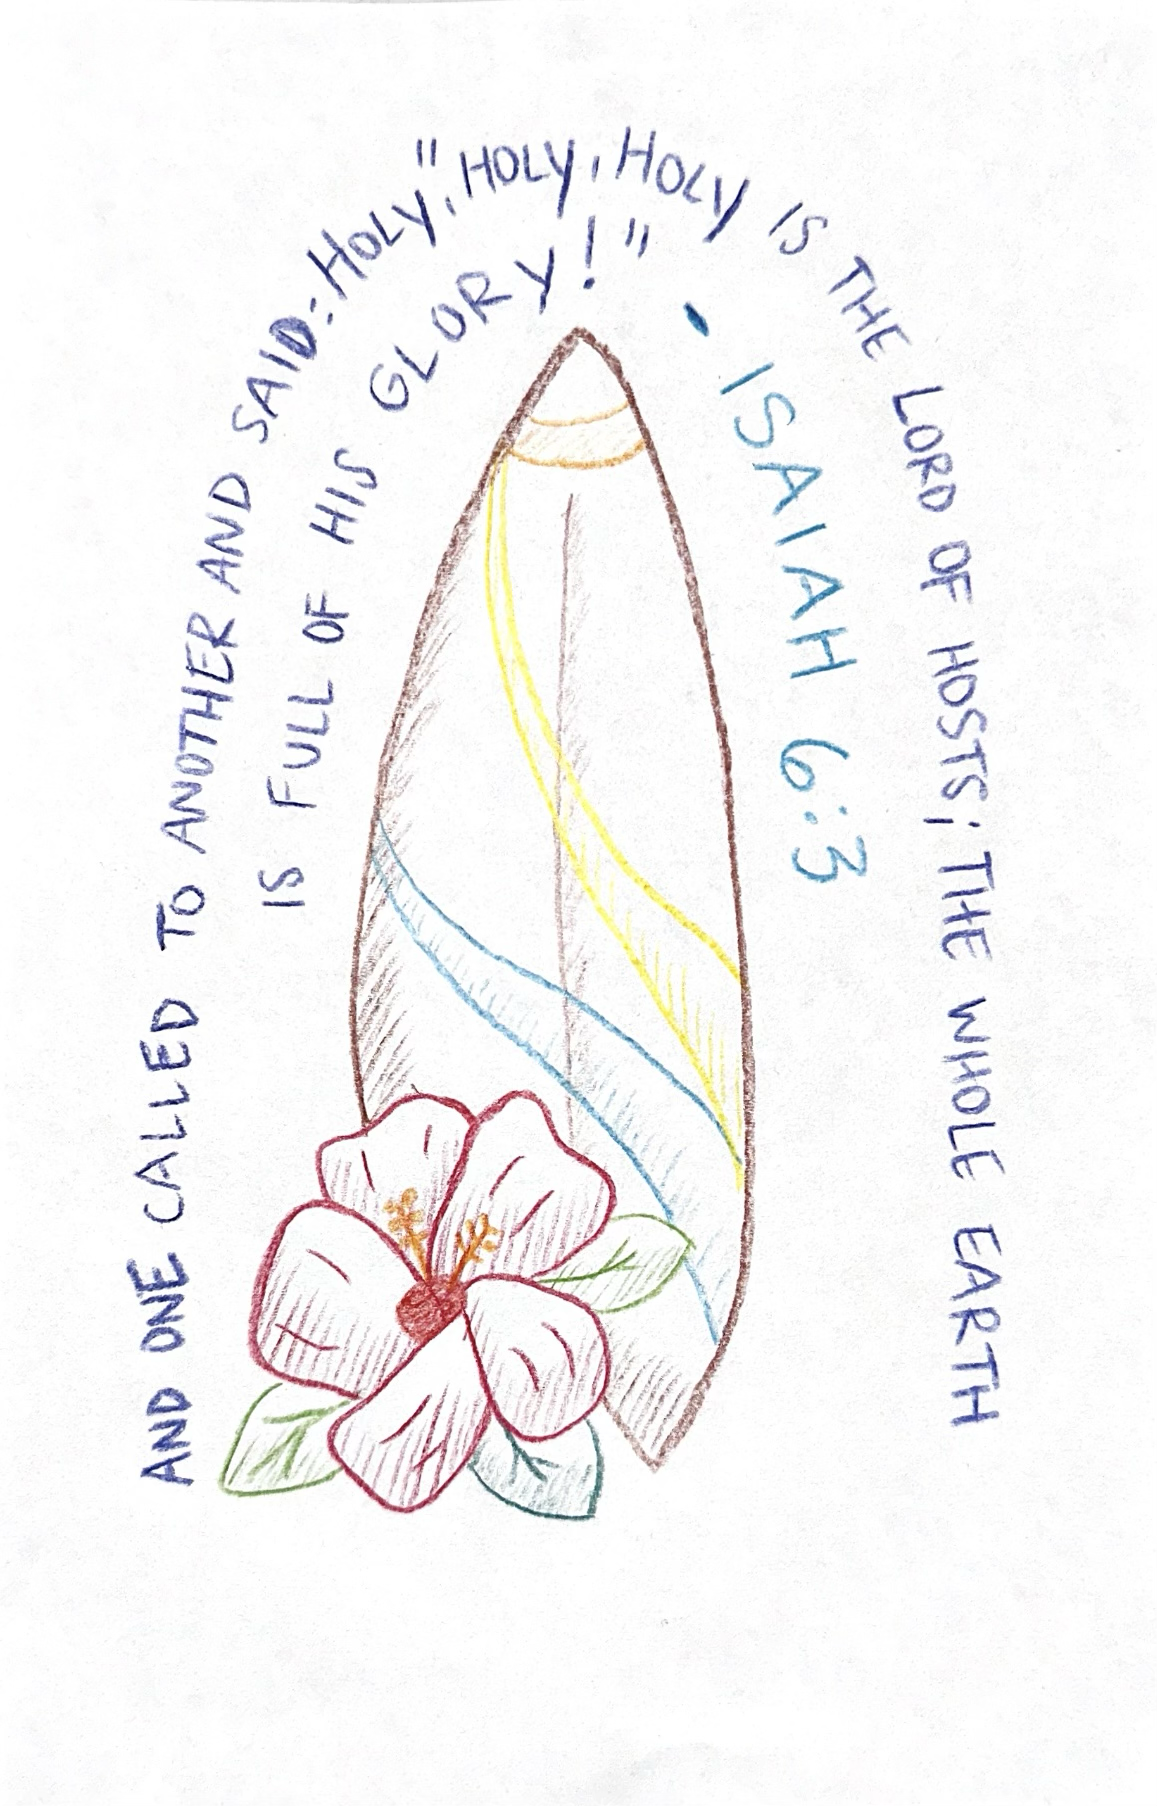 AND ONE CALLED TO ANOTHER AND SAID: HOLY", HOLY, HOLY IS THE LORD OF HOSTS; THE WHOLE EARTH
IS FULL OF HIS GLORY!"
- ISAIAH 6:3